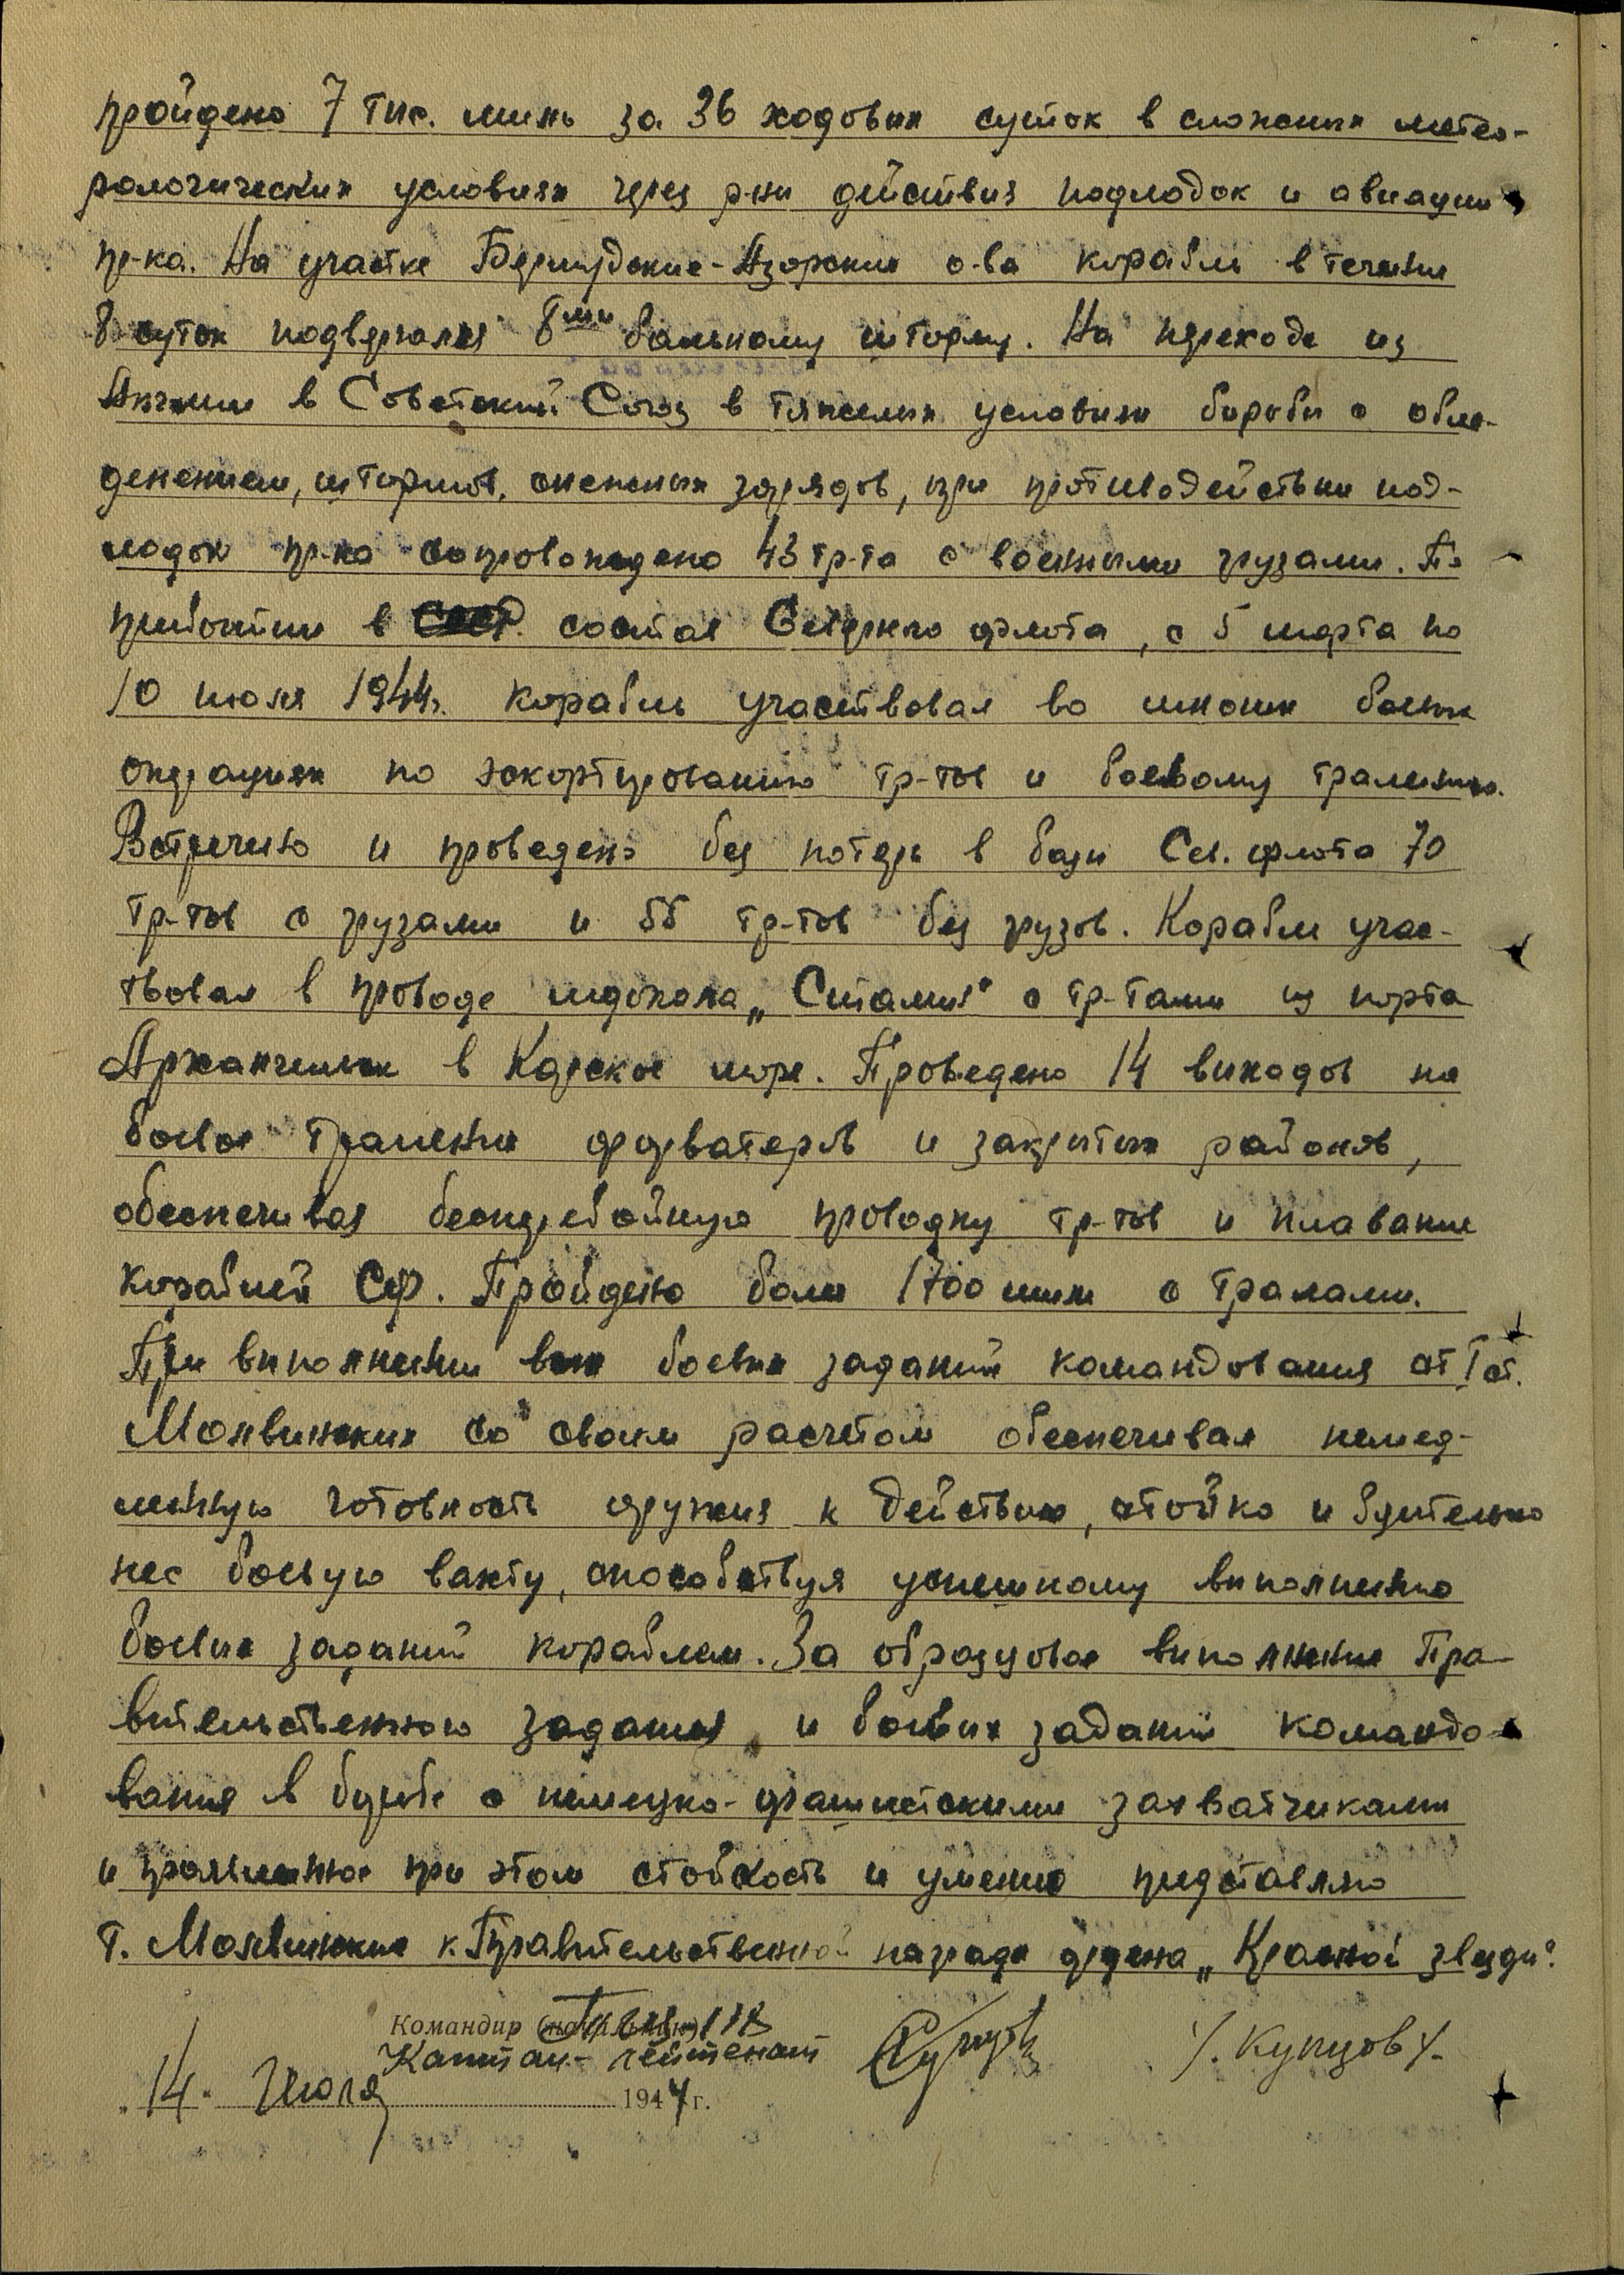 пройдено 7 тыс. миль за 36 ходовых суток в сложных метео-
рологических условиях через р-ны действия подлодок и авиации
пр-ка. На участке Бермудские-Азорские о-ва корабль в течении
8 суток подвергался 8ми бальному шторму. На переходе из
Англии в Советский Союз в тяжелых условиях борьбы с обле-
денением, штормов, снежных зарядов, при противодействии под-
лодок пр-ка сопровождено 43 тр-та с военными грузами. По
прибытии в состав Северного флота, с 5 марта по
10 июля 1944г. корабль участвовал во многих боевых
операциях по эскортированию тр-тов и боевому тралению.
Встречено и проведено без потерь в базы Сев. флота 70
тр-тов с грузами и 55 тр-тов без грузов. Корабль учас-
твовал в проводе ледокола „Сталин" с тр-тами из порта
Архангельск в Карское море. Проведено 14 выходов на
боевое траление фарватеров и закрытых районов,
обеспечивая бесперебойную проводку тр-тов и плавание
кораблей СФ. Пройдено более 1700 миль с тралами.
При выполнении всех боевых заданий командования ст 1 ст.
Молвинских со своим расчетом обеспечивал немед-
ленную готовность оружия к действию, стойко и бдительно
нес боевую вахту, способствуя успешному выполнению
боевых заданий кораблем. За образцовое выполнение Пра-
вительственного задания и боевых заданий командо-
вания в борьбе с немецко-фашистскими захватчиками
и проявленное при этом стойкость и умение представляю
т. Молвинских к Правительственной награде ордена „Красной звезды".
Командир (начальник)
Капитан-лейтенант /. Купцов /.
„14" Июля 1944 г.